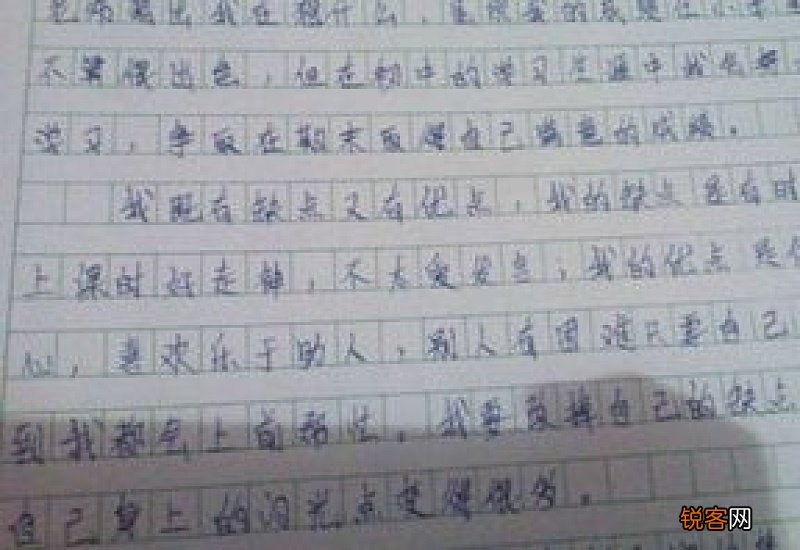 我在想什么，虽然我的成绩在小学
不算很出色，但在初中的学习生涯中我
学习，争取在期末取得自己满意的成绩。
我既有缺点又有优点，我的缺点是有时
上课时好走神，不大爱发言，我的优点是
心，喜欢乐于助人，别人有困难只要自己
到我都会上前帮忙。我要改掉自己的缺点
自己身上的闪光点变得很多。
锐客网